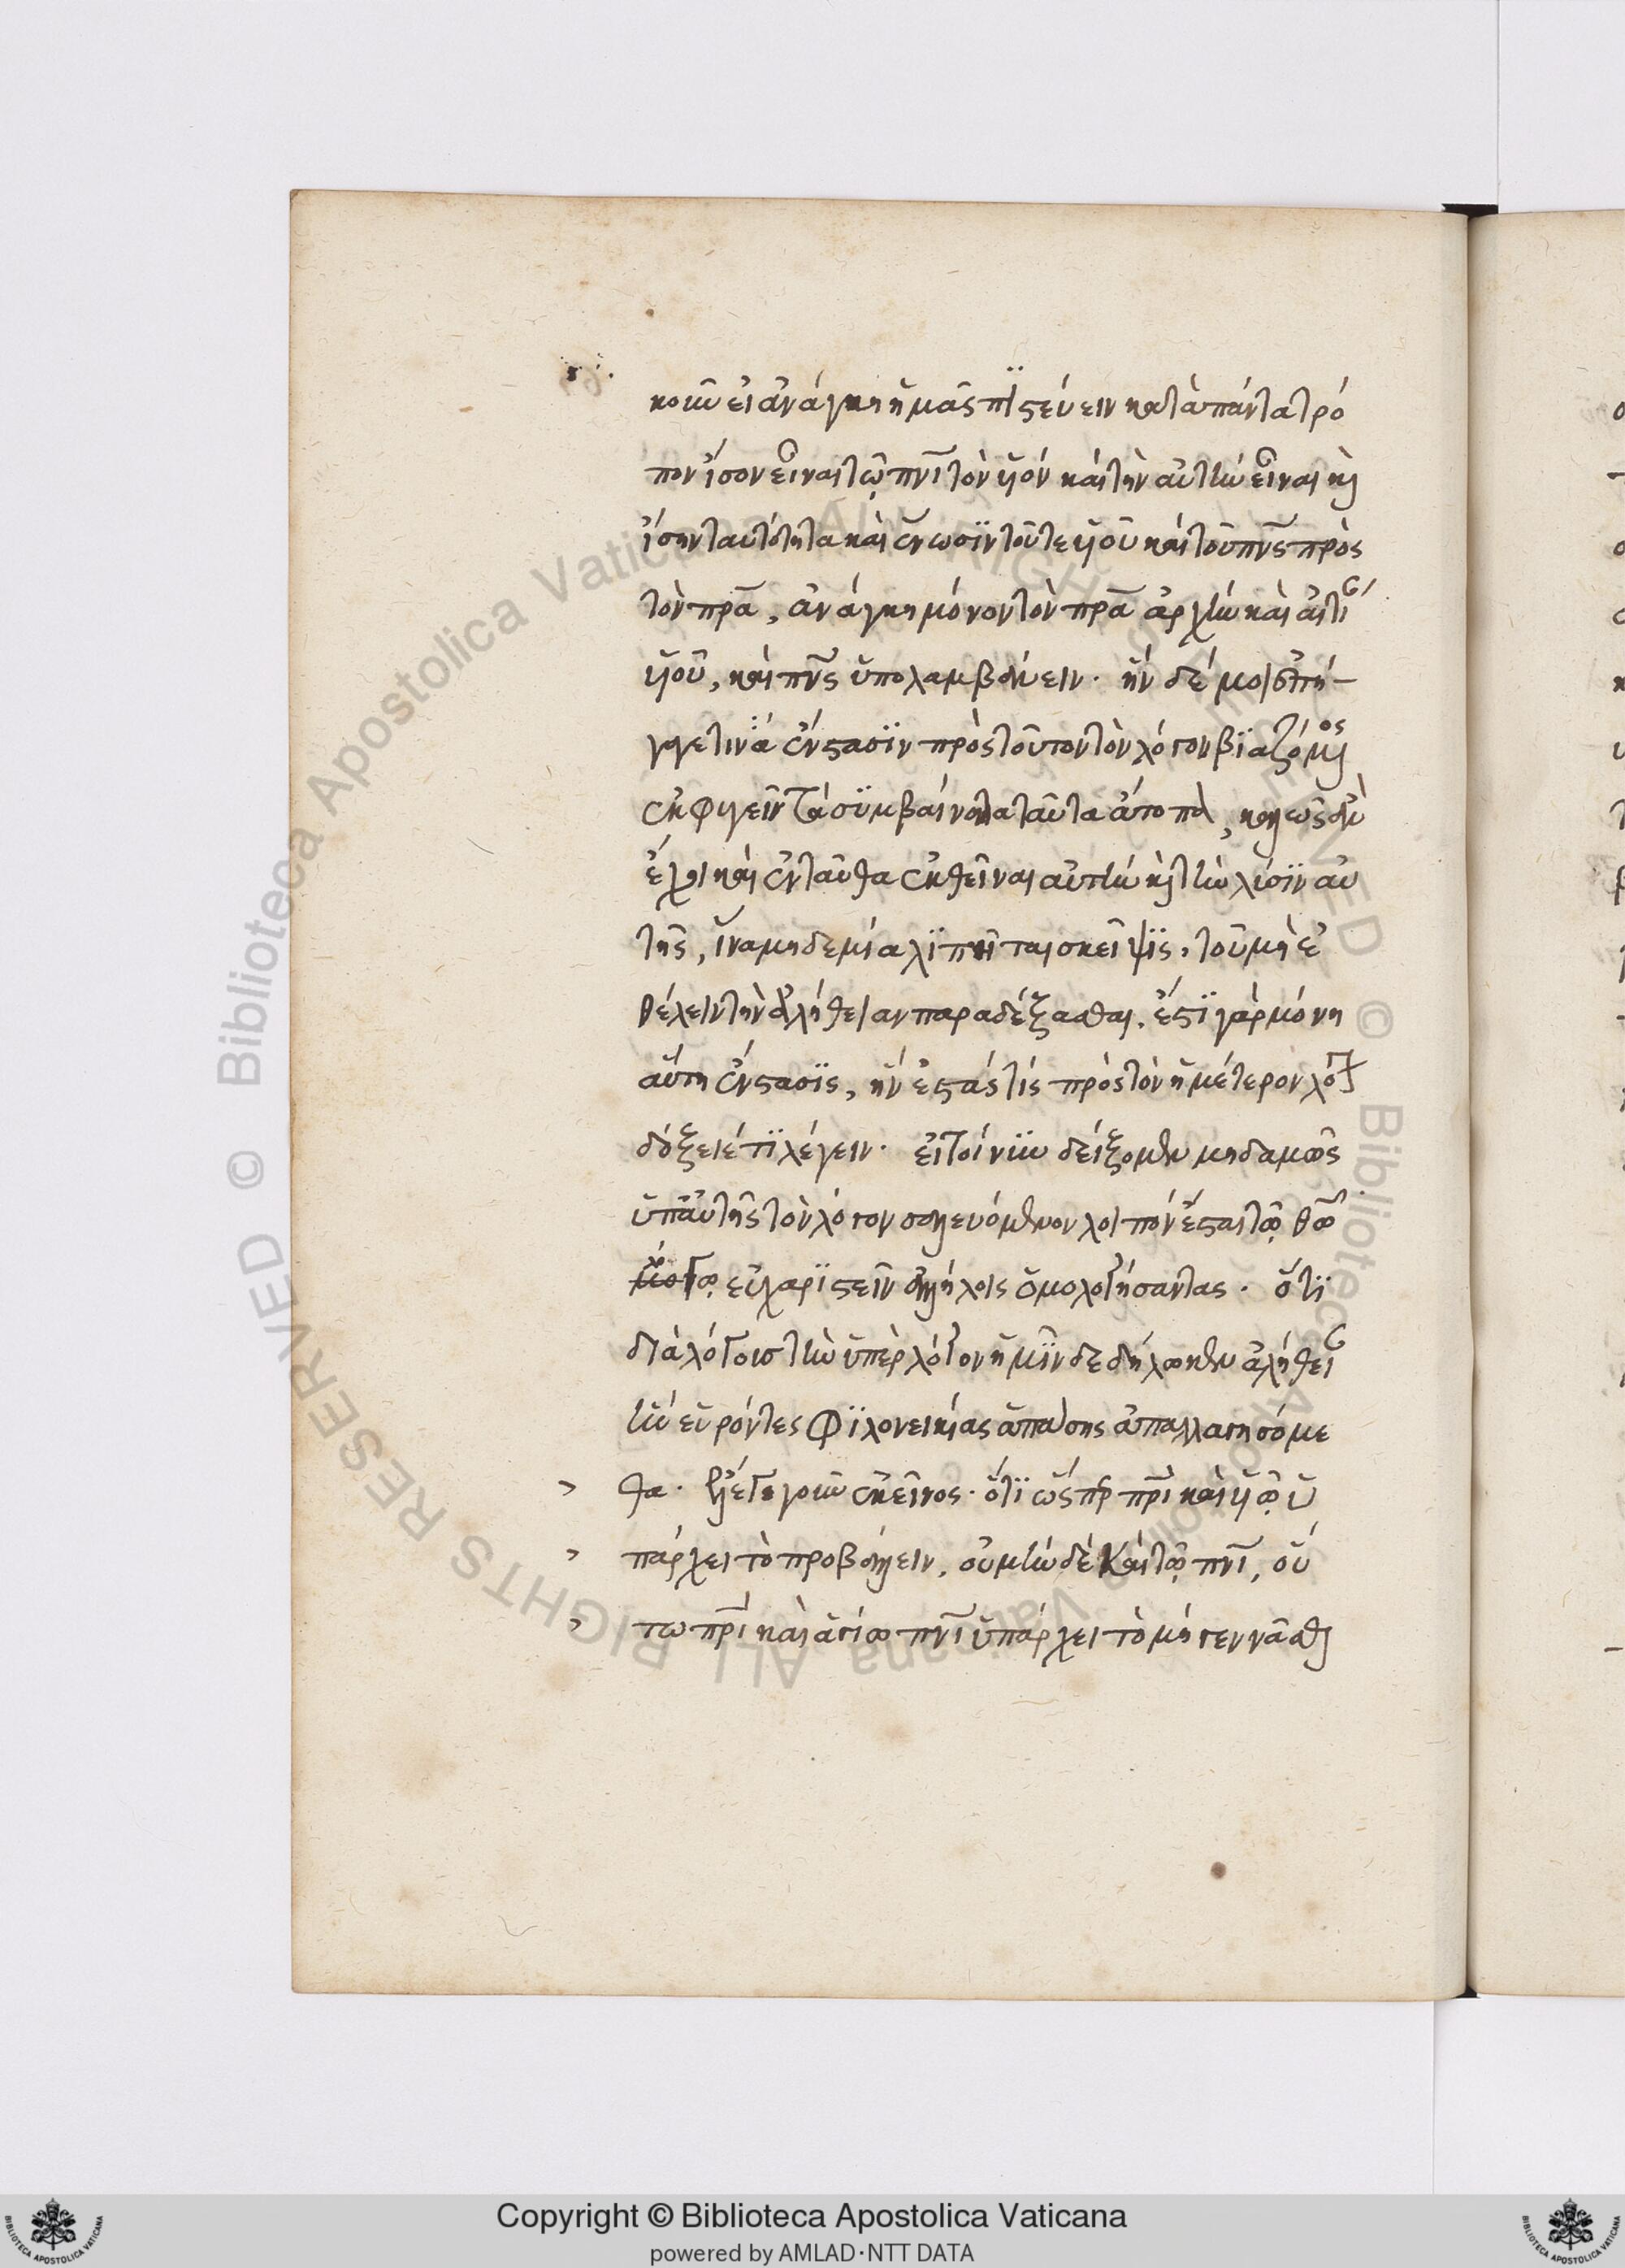 κοιν εἰ ἀνάγκη ἡμᾶς πιστεύειν κατὰ πάντα τρό
πον ἴσον εἶναι τῶ πνι τὸν υἱόν καὶ τὴν αὐτὴν εἶναι καὶ
ἴσην ταυτότητα καὶ ἕνωσιν τοῦ τε υἱοῦ καὶ τοῦ πνς πρὸς
τὸν πρα, ἀνάγκη μόνον τὸν πρα ἀρχὴν καὶ αἰτί
υἱοῦ, καὶ πνς ὑπολαμβάνειν. ἣν δέ μοι ἐπή-
γγελτινα ἔνστασιν πρὸς τοῦτον τὸν λόγον βιαζόμος
ἐκφυγεῖν τὰ συμβαίνοντα ταῦτα ἄτοπα, καλῶς ἂν
ἔχοι καὶ ἐνταῦθα ἐκθεῖναι αὐτὴν καὶ τὴν λύσιν αὐ
τῆς, ἵνα μηδεμία λίπηται σκεῖψις, τοῦ μὴ ἐ
θέλειν τὴν ἀλήθειαν παραδέξασθαι. ἔστι γὰρ μόνη
αὕτη ἔνστασις, ἣν ἐστάς τίς πρὸς τὸν ἡμέτερον λό
δόξει ἔτι λέγειν. εἰ τοίνυν δείξομεν μηδαμῶς
ὑπ' αὐτῆς τὸν λόγον σαλευόμενον λοιπόν ἔσται τῶ θῶ
λόγω εὐχαριστεῖν ἀλλήλοις ὁμολογήσαντας. ὅτι
διὰ λόγοις τὴν ὑπὲρ λόγον ἡμῖν δεδήλωκεν ἀλήθει
ἣν εὑρόντες φιλονεικίας ἁπάσης ἀπαλλαγησόμε
θα. λέγει γοῦν ἐκεῖνος. ὅτι ὥσπερ πρι καὶ υἱῶ ὑ
πάρχει τὸ προβάλλειν, οὐ μὴν δὲ καὶ τῶ πνι, οὕ
τω πρι καὶ ἁγίω πνι ὑπάρχει τὸ μὴ γεννᾶσθαι
Copyright © Biblioteca Apostolica Vaticana
powered by AMLAD·NTT DATA